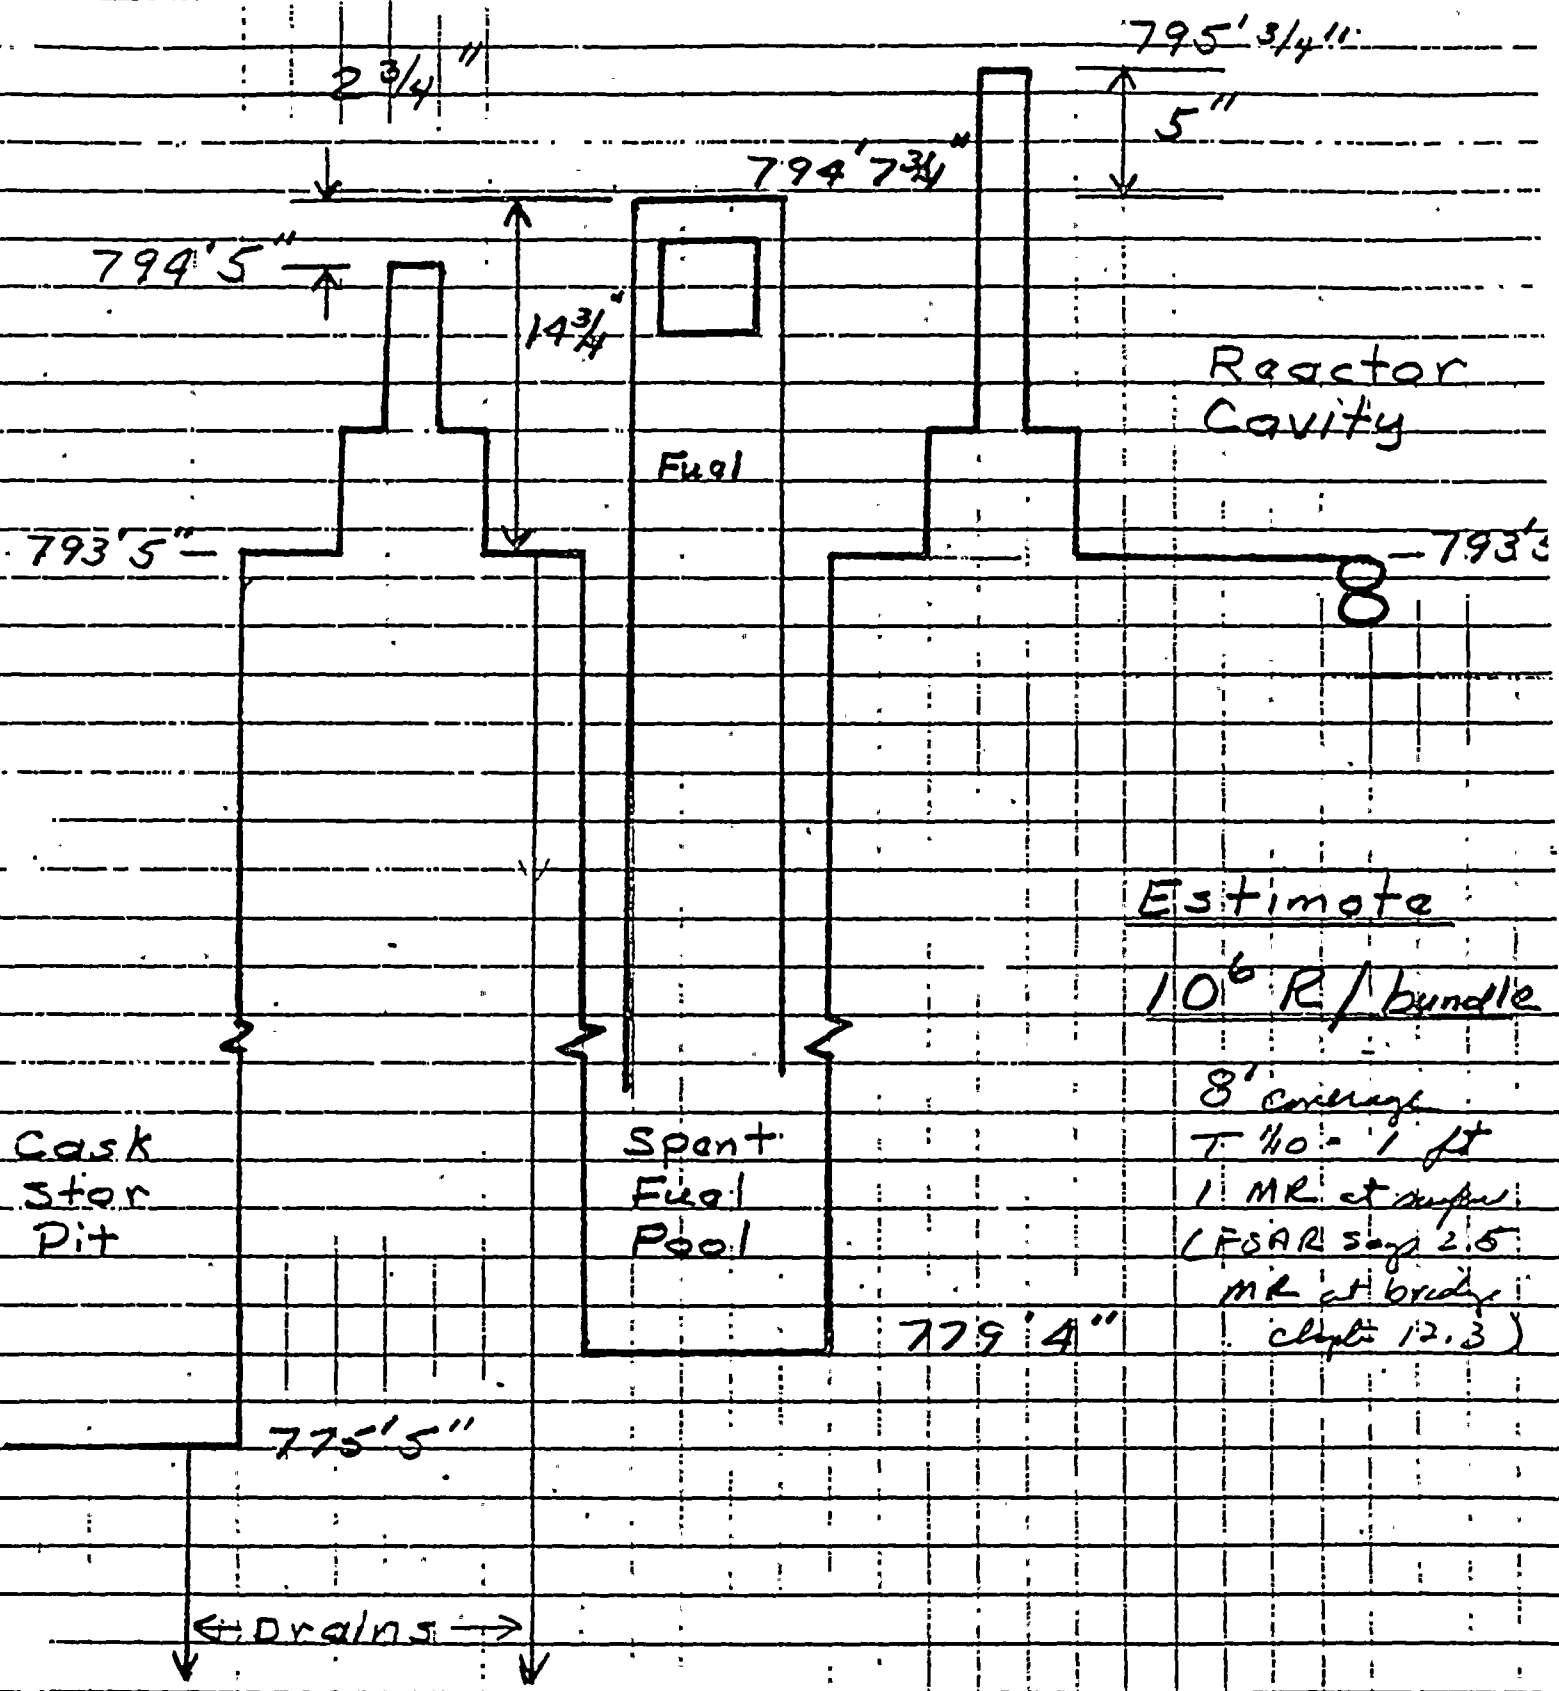 795' 3/4"
2 3/4"
5"
794' 7 3/4"
794' 5"
14 3/4"
Reactor
Cavity
Fuel
793' 5"
793' 5
Estimate
10⁶ R / bundle
8' coverage
T 1/10 = 1 ft
1 MR at surface
(FSAR says 2.5
MR at bridge
chapter 12.3)
Cask
Stor
Pit
Spent
Fuel
Pool
779' 4"
775' 5"
Drains